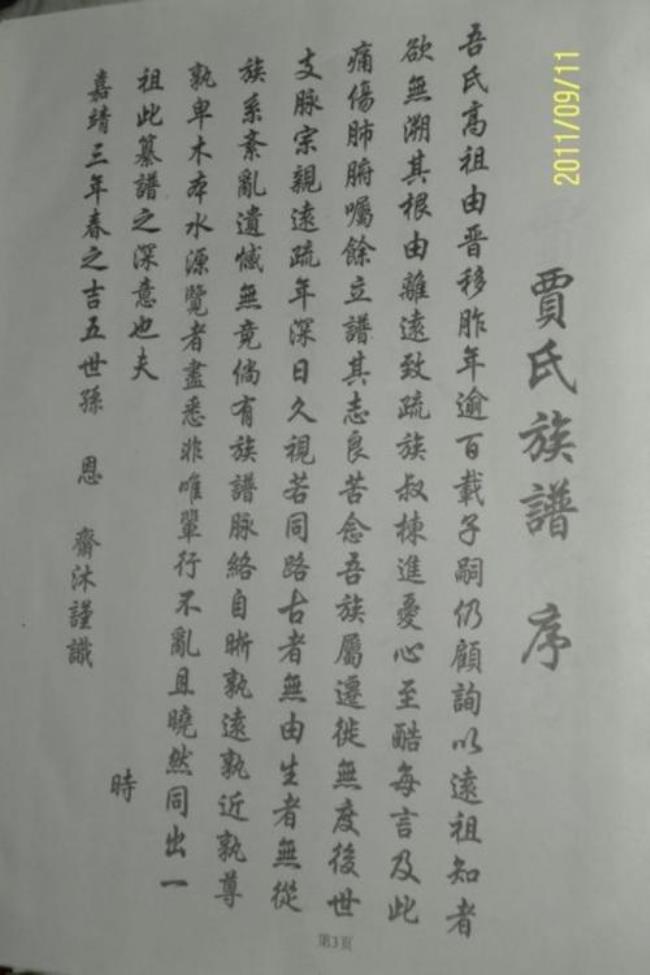 賈氏族譜 序
吾氏高祖由晋移胙年逾百載子嗣仍顧詢以遠祖知者
欲無溯其根由離遠致疏族叔棟進憂心至酷每言及此
痛傷肺腑囑餘立譜其志良苦念吾族屬遷徙無度後世
支脉宗親遠疏年深日久視若同路古者無由生者無從
族系紊亂遺憾無竟倘有族譜脉絡自晰孰遠孰近孰尊
孰卑木本水源覽者盡悉非唯輩行不亂且曉然同出一
祖此纂譜之深意也夫
時
嘉靖三年春之吉五世孫 恩 齋沐謹識
第3頁
2011/09/11